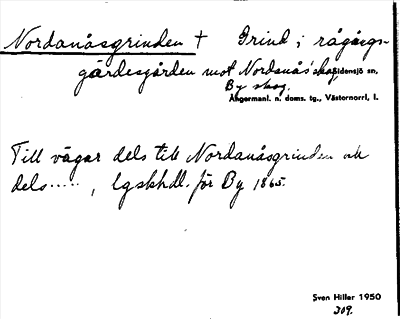 Nordanåsgrinden † Grind i rågångs-
gärdesgården mot Nordanås' skog, Sidensjö sn,
By skog.
Ångermanl. n. doms. tg., Västernorrl. l.
Till vägar dels till Nordanåsgrinden och
dels ....., lgskhdl. för By 1865.
Sven Hiller 1950
309.